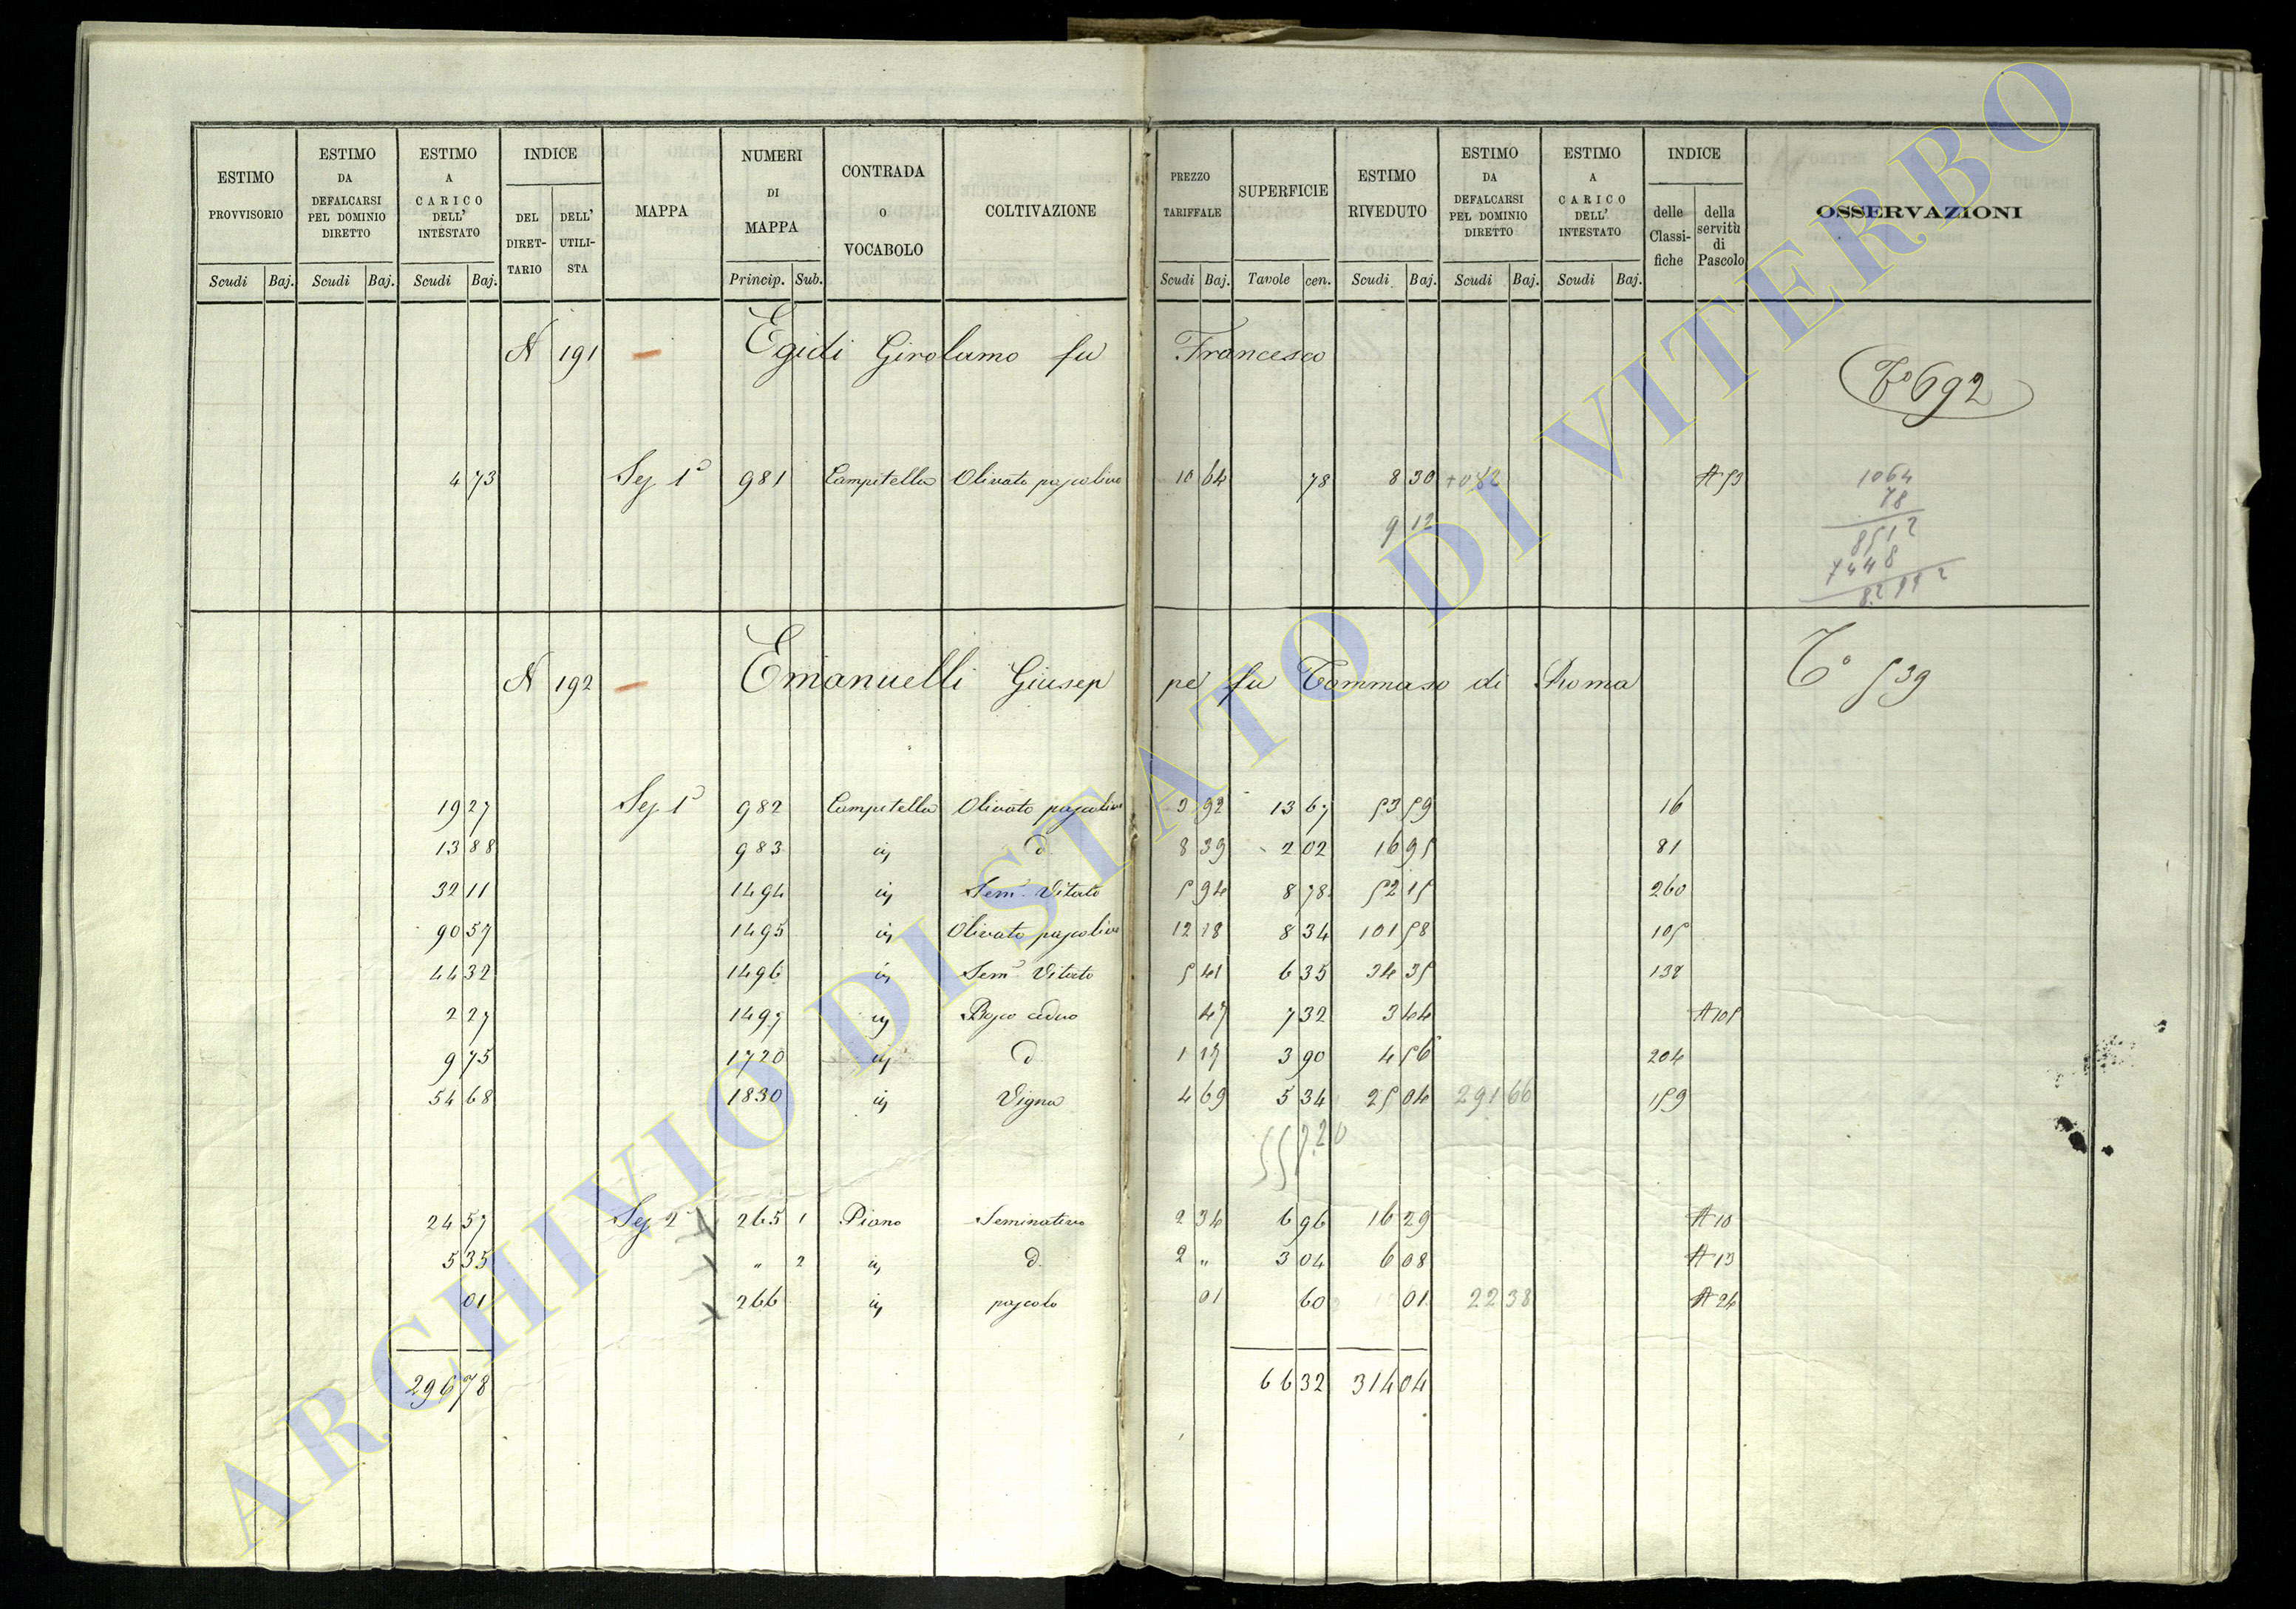 ESTIMO PROVVISORIO | ESTIMO DA DEFALCARSI PEL DOMINIO DIRETTO | ESTIMO A CARICO DELL' INTESTATO | INDICE DEL DIRET-TARIO | DELL' UTILI-STA | MAPPA | NUMERI DI MAPPA | CONTRADA O VOCABOLO | COLTIVAZIONE | PREZZO TARIFFALE | SUPERFICIE | ESTIMO RIVEDUTO | ESTIMO DA DEFALCARSI PEL DOMINIO DIRETTO | ESTIMO A CARICO DELL' INTESTATO | INDICE delle Classi-fiche | della servitù di Pascolo | OSSERVAZIONI
Scudi | Baj. | Scudi | Baj. | Scudi | Baj. | Princip. | Sub. | Scudi | Baj. | Tavole | cen. | Scudi | Baj. | Scudi | Baj. | Scudi | Baj.
N 191 — Egidi Girolamo fu Francesco
To 692
4 73 Sez 1a 981 Campitella Olivato pascolivo 10 64 78 8 30 +0 82 A 53
9 12
1064
78
8512
7448
8.2992
N 192 — Emanuelli Giuseppe fu Tommaso di Roma To 539
19 27 Sez 1a 982 Campitella Olivato pascolivo 3 92 13 67 53 59 16
13 88 983 id d 8 39 2 02 16 95 81
32 11 1494 id Sem. Vitato 5 94 8 78 52 15 260
90 57 1495 id Olivato pascolivo 12 18 8 34 101 58 105
44 32 1496 id Sem. Vitato 5 41 6 35 34 35
2 27 1497 id Bosco ceduo 47 7 32 3 44 A 105
9 75 1720 id d 1 17 3 90 4 56 204
54 68 1830 id Vigna 4 69 5 34 25 04 291 66 159
24 57 Sez 2a 265 1 Piano Seminativo 2 34 6 96 16 29 A 10
5 35 " 2 id d. 2 " 3 04 6 08 A 13
01 266 id pascolo 01 60 01 22 38 A 24
296 78 66 32 314 04
ARCHIVIO DI STATO DI VITERBO